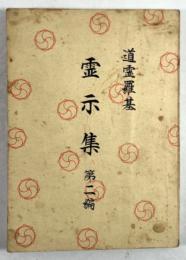 道霊羅基
霊示集
第二編